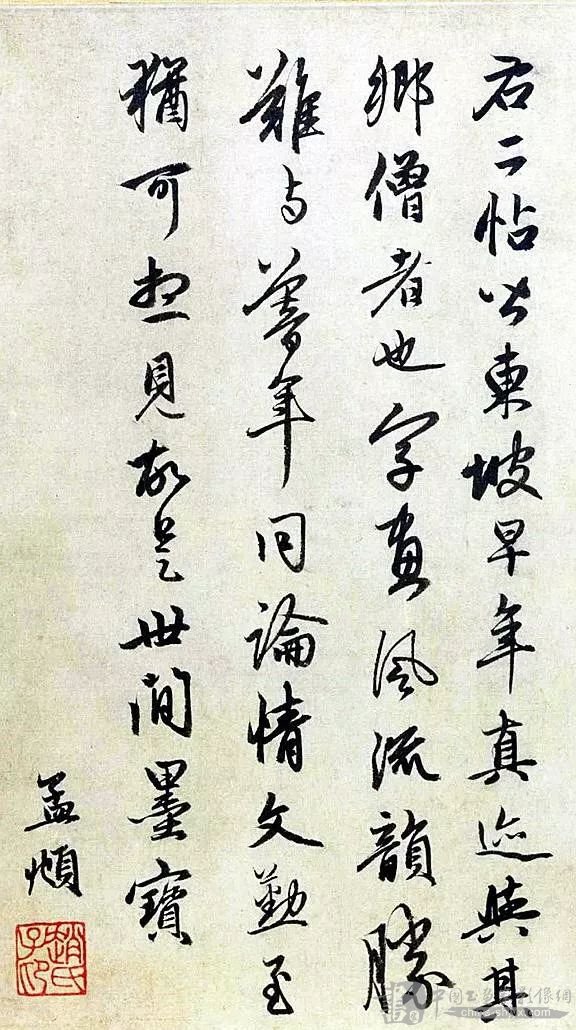 右二帖皆東坡早年真迹與其
鄉僧者也字畫風流韻勝
難与暮年同論情文勤至
猶可想見故是世間墨寶
孟頫
趙氏子昂
中国书画影像網